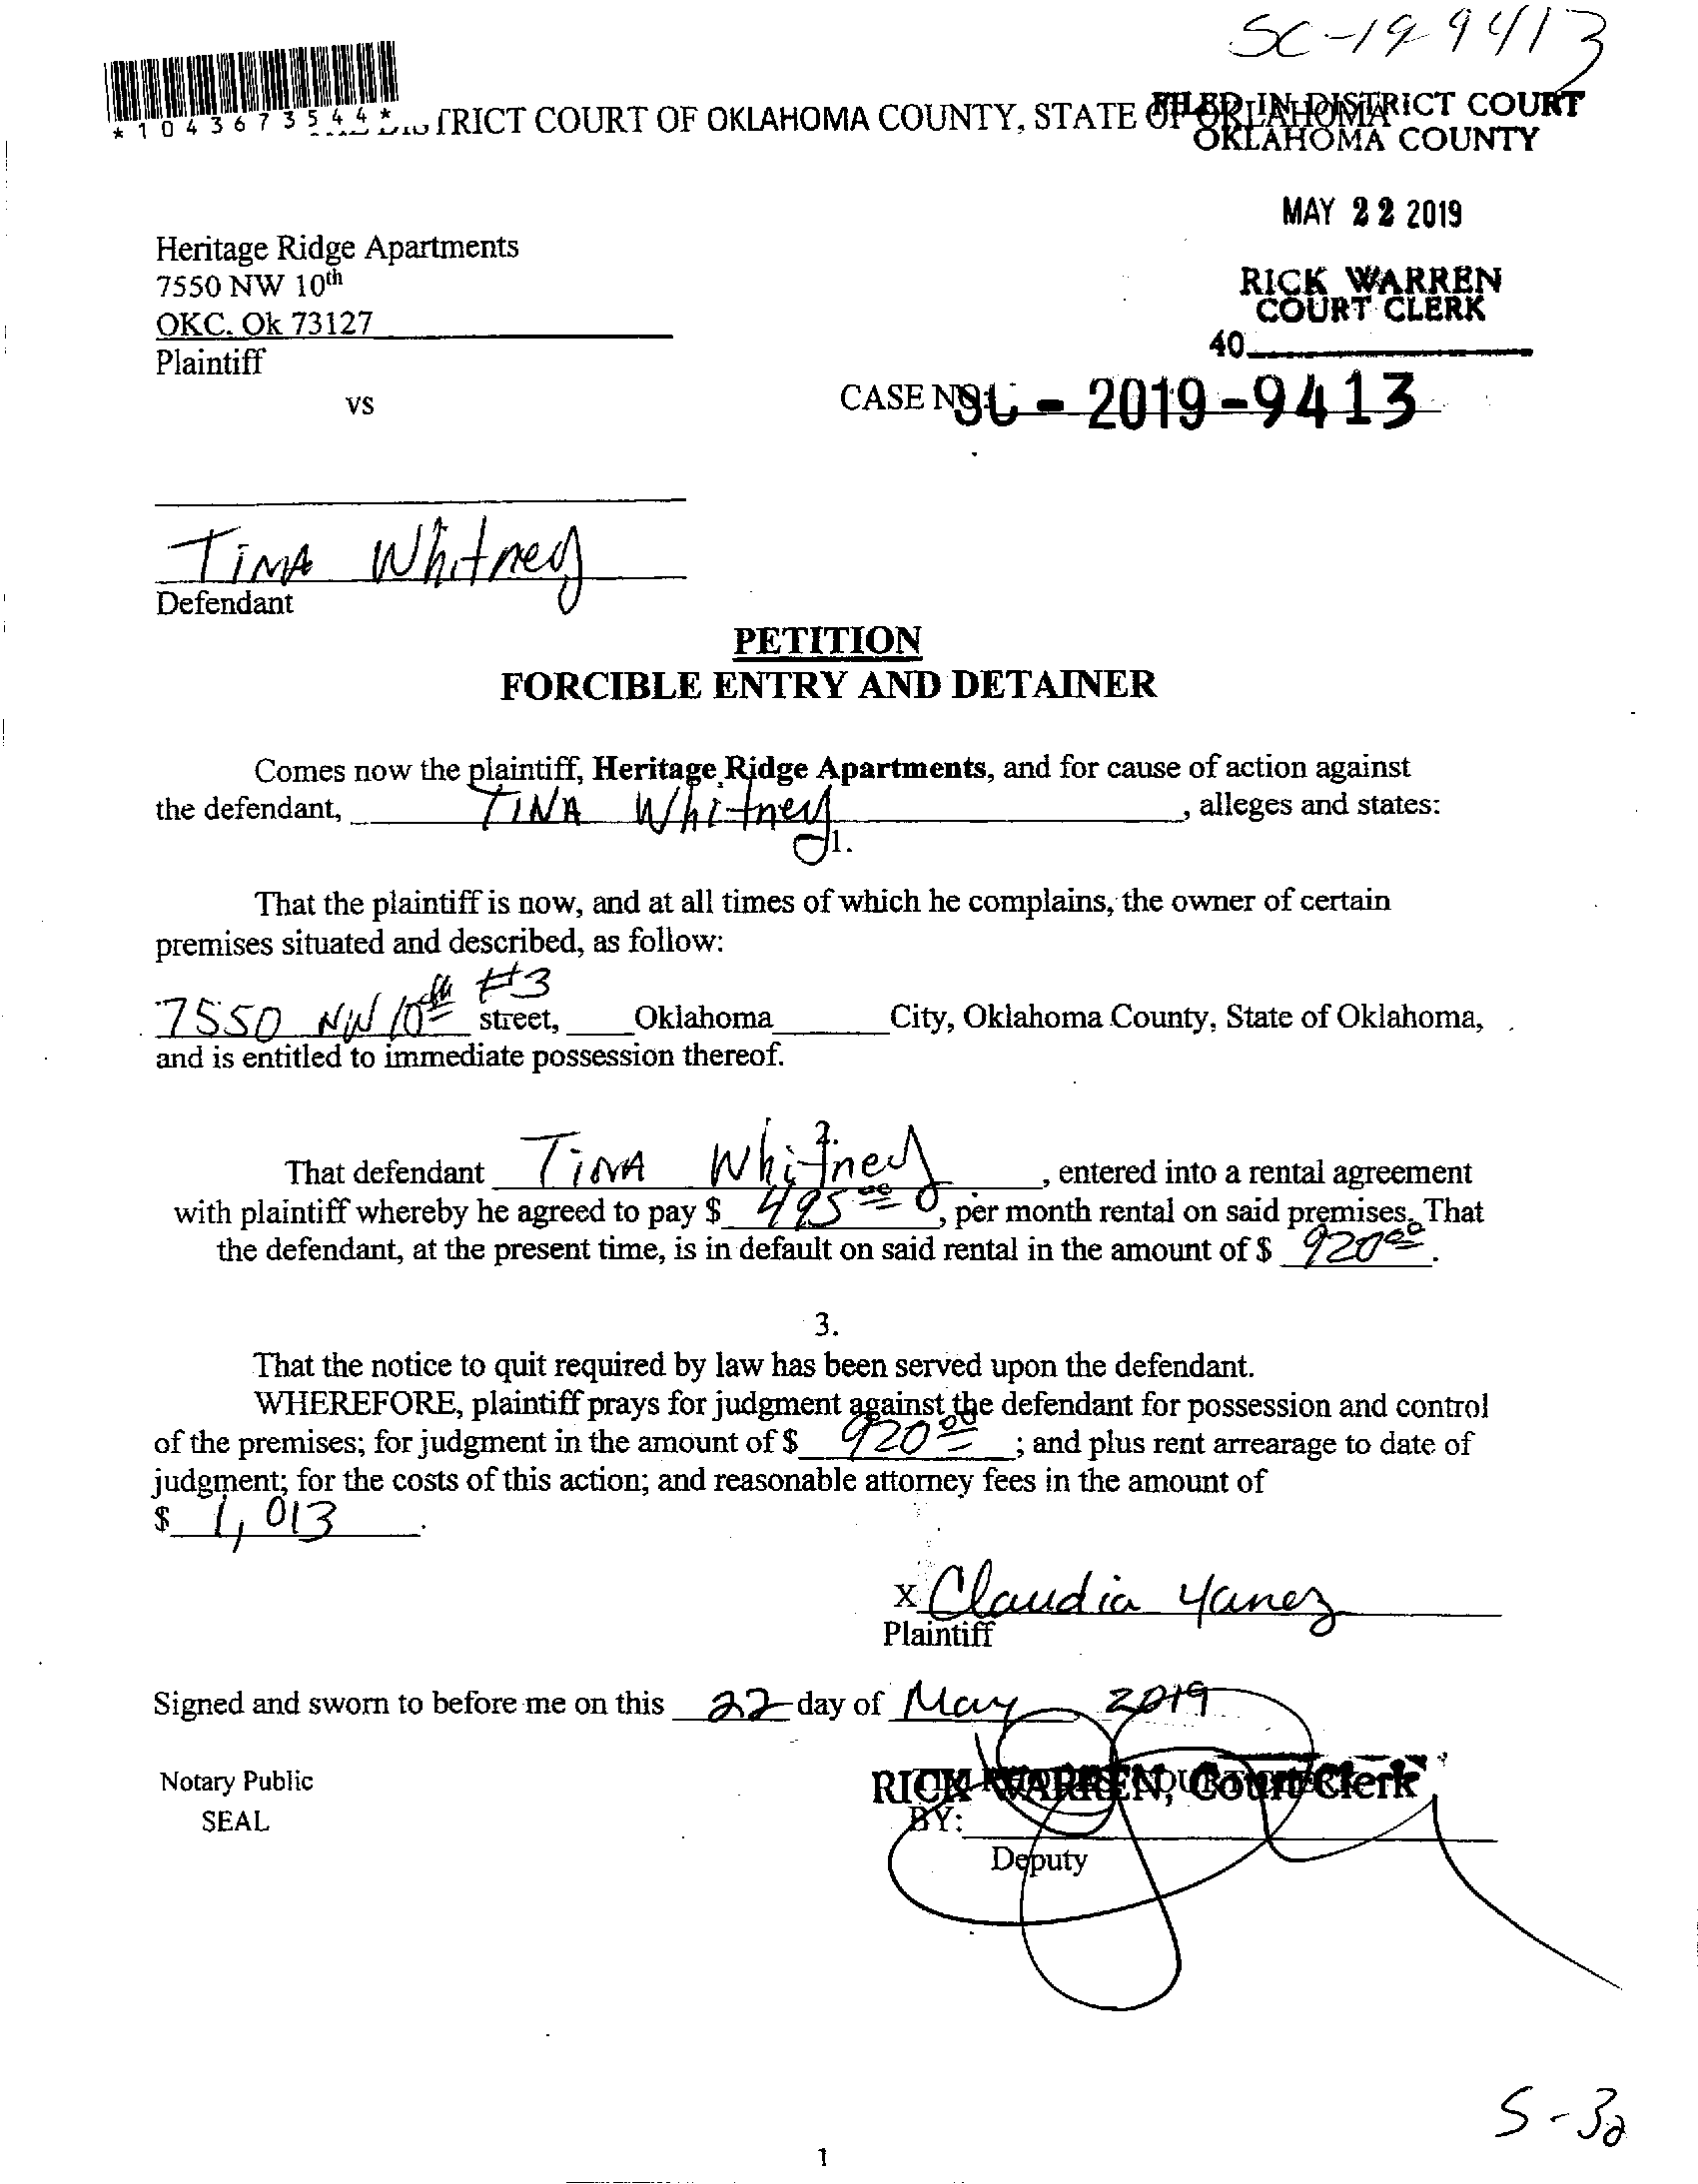 SC-19-9413
*1043673544*
TRICT COURT OF OKLAHOMA COUNTY, STATE OF OKLAHOMA
FILED IN DISTRICT COURT
OKLAHOMA COUNTY
MAY 22 2019
Heritage Ridge Apartments
7550 NW 10th
OKC. Ok 73127
Plaintiff
RICK WARREN
COURT CLERK
40
vs
CASE NO. SC - 2019 - 9413
Tina Whitney
Defendant
PETITION
FORCIBLE ENTRY AND DETAINER
Comes now the plaintiff, Heritage Ridge Apartments, and for cause of action against
the defendant, Tina Whitney, alleges and states:
1.
That the plaintiff is now, and at all times of which he complains, the owner of certain
premises situated and described, as follow:
7550 NW 10th #3 street, Oklahoma City, Oklahoma County, State of Oklahoma,
and is entitled to immediate possession thereof.
2.
That defendant Tina Whitney, entered into a rental agreement
with plaintiff whereby he agreed to pay $ 495 00, per month rental on said premises. That
the defendant, at the present time, is in default on said rental in the amount of $ 920 00.
3.
That the notice to quit required by law has been served upon the defendant.
WHEREFORE, plaintiff prays for judgment against the defendant for possession and control
of the premises; for judgment in the amount of $ 920 00; and plus rent arrearage to date of
judgment; for the costs of this action; and reasonable attorney fees in the amount of
$ 1,013.
x Claudia Yanez
Plaintiff
Signed and sworn to before me on this 22 day of May 2019
Notary Public
SEAL
RICK WARREN, Court Clerk
BY:
Deputy
1